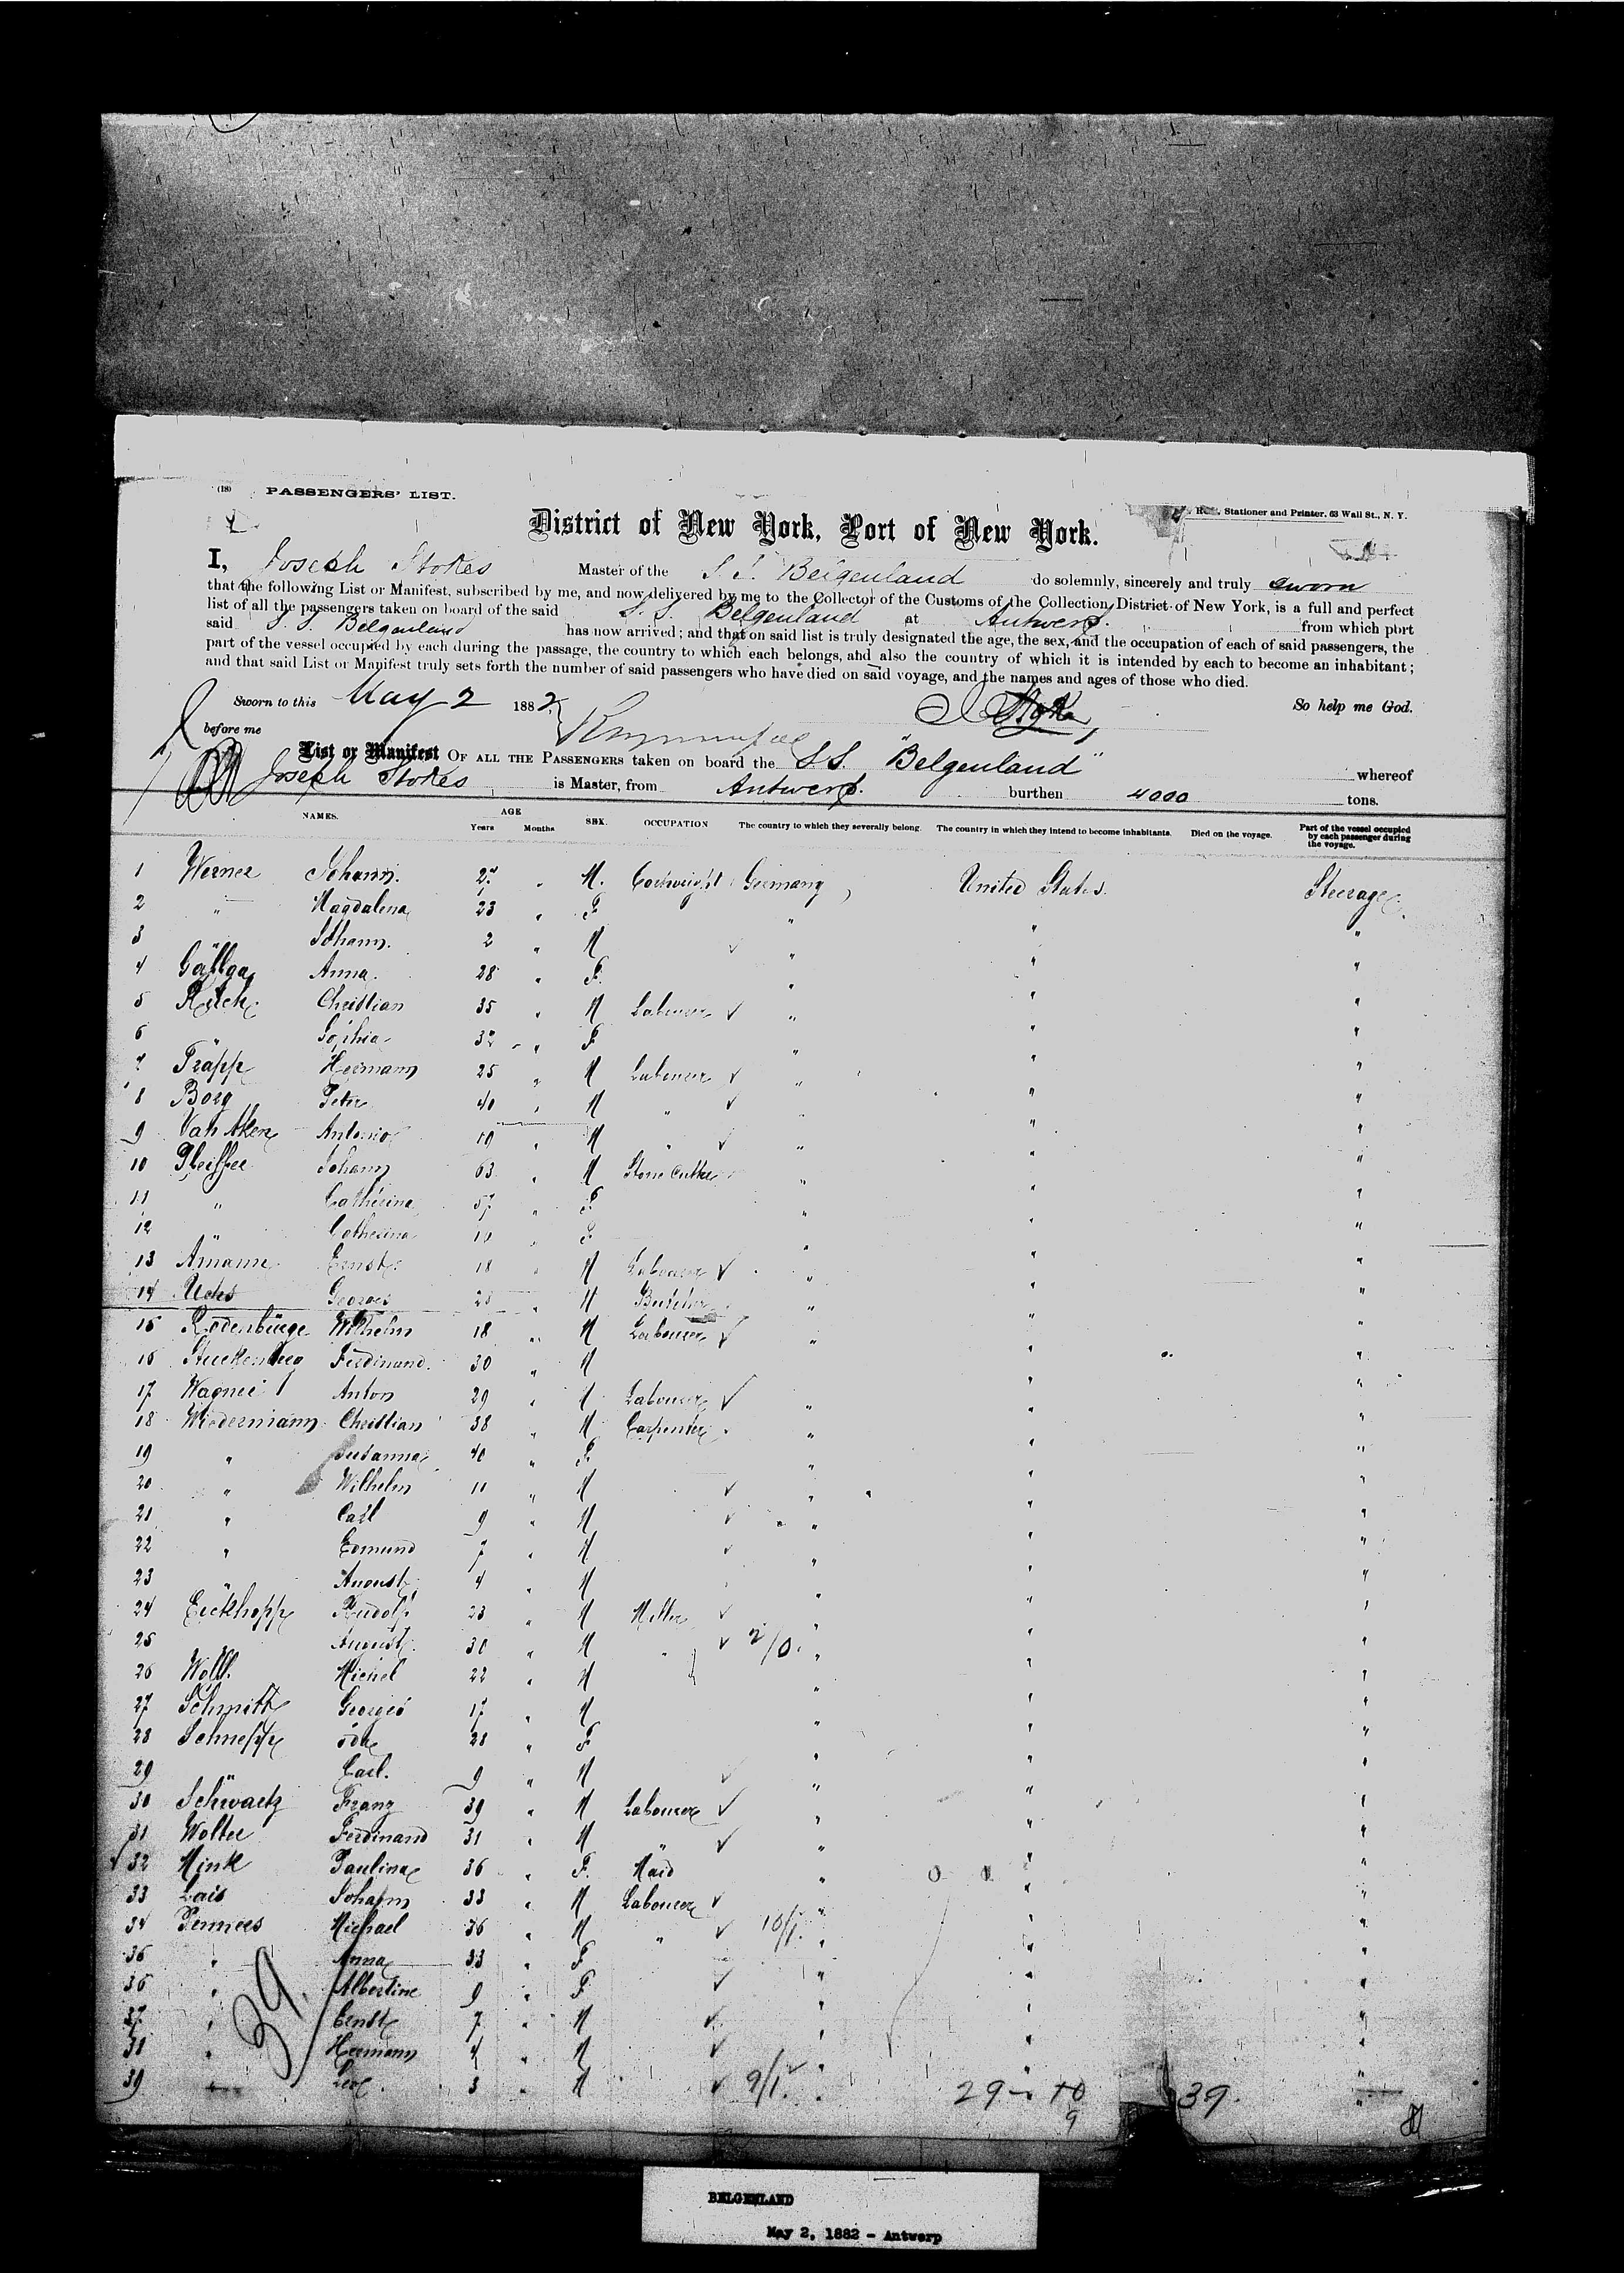 (18) PASSENGERS' LIST.
Stationer and Printer, 63 Wall St., N. Y.
District of New York, Port of New York.
I, Joseph Stokes Master of the S. S. Belgenland do solemnly, sincerely and truly sworn
that the following List or Manifest, subscribed by me, and now delivered by me to the Collector of the Customs of the Collection District of New York, is a full and perfect
list of all the passengers taken on board of the said S. S. Belgenland at Antwerp. from which port
said S. S. Belgenland has now arrived; and that on said list is truly designated the age, the sex, and the occupation of each of said passengers, the
part of the vessel occupied by each during the passage, the country to which each belongs, and also the country of which it is intended by each to become an inhabitant;
and that said List or Manifest truly sets forth the number of said passengers who have died on said voyage, and the names and ages of those who died.
Sworn to this May 2 1882 So help me God.
before me
List or Manifest OF ALL THE PASSENGERS taken on board the S.S. "Belgenland" whereof
Joseph Stokes is Master, from Antwerp. burthen 4000 tons.
NAMES. AGE Years Months SEX. OCCUPATION The country to which they severally belong. The country in which they intend to become inhabitants. Died on the voyage. Part of the vessel occupied by each passenger during the voyage.
1 Werner Johann. M. Germany United States. Steerage
2 " Magdalena 23 " F " " "
3 " Johann. 2 " M " " "
4 Anna. 28 " F. " " "
5 Christian 35 " M Labourer " " "
6 " Sophia 32 " F " " "
7 Trapp Hermann 25 " M Labourer " " "
8 Borg Peter 40 " M " " " "
9 Van Aken 19 " M " " " "
10 Pfeiffer Johann 63 " M Stone Cutter " " "
11 " Catherina 57 " F " " "
12 " Catherina " F " " "
13 Amann Ernst 18 " M Labourer " " "
14 Georges " M Butcher " " "
15 Wilhelm 18 " M Labourer " " "
16 Stuckenberg Ferdinand. 30 " M " "
17 Wagner Anton 29 " M Labourer " " "
18 Wiedermann Christian 38 " M Carpenter " " "
19 " Susanna 40 " F " " "
20 " Wilhelm 11 " M " " "
21 " Carl 9 " M " " "
22 " Edmund 7 " M " " "
23 " August 4 " M " " "
24 Eickhopp Rudolf 23 " M Miller " " "
25 August. 30 " M " 2/0. " " "
26 Wolf. Michel 22 " M " " "
27 Schmitt Georges 17 " M " " "
28 Schnepp Ida 28 " F " " "
29 " Carl. 9 " M " " "
30 Schwartz Franz 39 " M Labourer " " "
31 Wolter Ferdinand 31 " M " " " "
32 Mink Paulina 36 " F. Maid " " "
33 Lais Johann 33 " M Labourer " " "
34 Michael 36 " M " 10/1. " " "
35 " Anna 33 " F " " "
36 " Albertine 9 " F " " "
37 " Ernst 7 " M " " "
38 " Hermann 4 " M " " "
39 " Leo 3 " M 9/1. " " "
39.
29 - 10 39.
9
BELGENLAND
May 2, 1882 - Antwerp